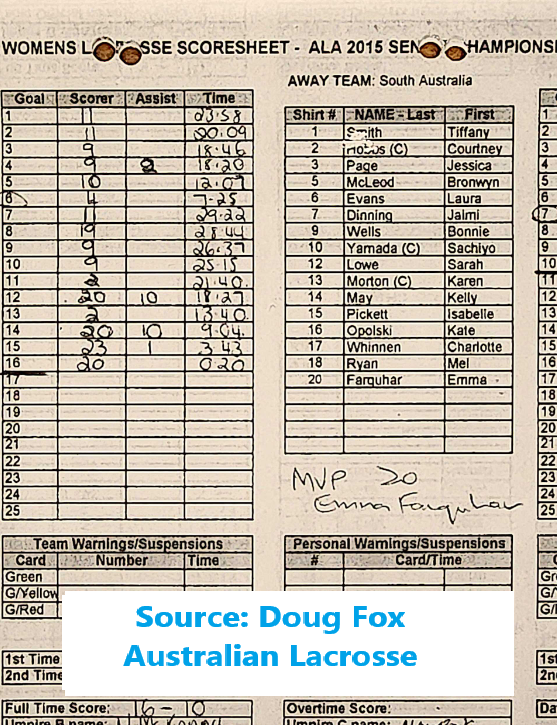 WOMENS LACROSSE SCORESHEET - ALA 2015 SENIOR CHAMPIONS
AWAY TEAM: South Australia
Goal Scorer Assist Time
1 11 03.58
2 11 00.09
3 9 18.46
4 9 2 18.20
5 10 12.07
6 4 7-25
7 11 29.22
8 19 28.44
9 9 26.37
10 9 25.15
11 2 21.40
12 20 10 18.27
13 2 13.40
14 20 10 9.04
15 23 1 3.43
16 20 0.20
17
18
19
20
21
22
23
24
25
Shirt # NAME - Last First
1 Smith Tiffany
2 Hobbs (C) Courtney
3 Page Jessica
5 McLeod Bronwyn
6 Evans Laura
7 Dinning Jalmi
9 Wells Bonnie
10 Yamada (C) Sachiyo
12 Lowe Sarah
13 Morton (C) Karen
14 May Kelly
15 Pickett Isabelle
16 Opolski Kate
17 Whinnen Charlotte
18 Ryan Mel
20 Farquhar Emma
MVP 20
Emma Farquhar
Team Warnings/Suspensions
Card Number Time
Green
G/Yellow
G/Red
Personal Warnings/Suspensions
# Card/Time
Source: Doug Fox
Australian Lacrosse
1st Time
2nd Time
Full Time Score: 16-10
Overtime Score:
Umpire B name:
Umpire C name: